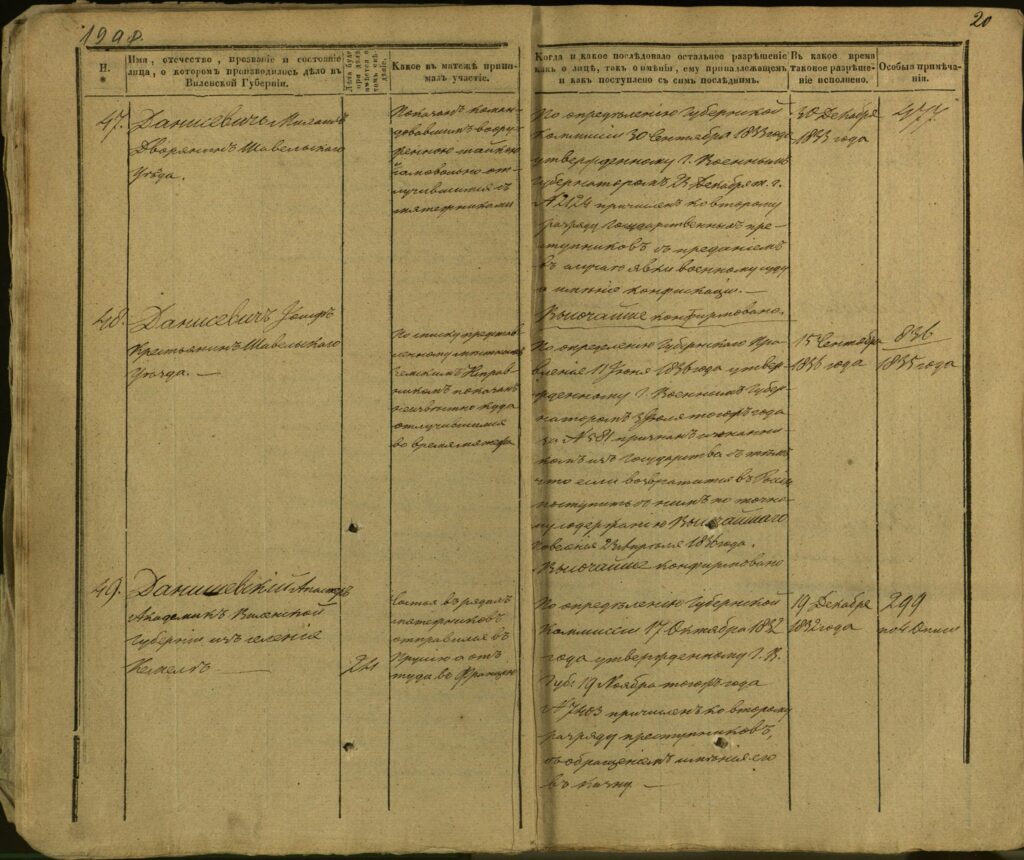 1998.
20
Н.
Имя, отечество, прозвание и состояние
лица, о котором производилось дѣло въ
Виленской Губерніи.
Какое въ матежѣ прини-
малъ участіе.
Когда и какое послѣдовало остальное разрѣшеніе
какъ о лицѣ, такъ о имѣніи, ему принадлежащемъ
и какъ поступлено съ симъ послѣднимъ.
Въ какое время
таковое разрѣше-
ніе исполнено.
Особыя примѣча-
нія.
47. Данисевичь
Дворянинъ Шавельскаго
Уѣзда.
Показанъ коман-
довавшимъ воору-
женною шайкою
самовольно от-
лучившимся съ
мятежниками
По опредѣленію Губернской
Коммисіи 30 Сентября 1833 года
утвержденному Г. Военнымъ
Губернаторомъ 22 Декабря т. г.
№ 2124 причисленъ ко второму
разряду Государственныхъ пре-
ступниковъ съ преданіемъ
въ случаѣ явки военному суду
а имѣніе конфискаціи. —
Высочайше конфирмовано.
30 Декабря
1833 года
477
48. Данисевичъ
Крестьянинъ Шавельскаго
Уѣзда. —
По списку представ-
ленному
показанъ
неизвѣстно куда
отлучившимся
во время мятежа
По опредѣленію Губернскаго Пра-
вленія 11 Іюня 1836 года утвер-
жденному Г. Военнымъ Губер-
наторомъ 3 Іюля того жъ года
за № 581 признанъ изгнанни-
комъ изъ Государства съ тѣмъ
что если возвратится въ Россію
поступить съ нимъ по точно-
му содержанію Высочайшаго
повелѣнія 23 Апрѣля 1836 года.
Высочайше конфирмовано
15 Сентября
1836 года
836
1835 года
49. Данишевскій
Академикъ Виленской
Губерніи изъ селенія
—
221
Состоя въ рядахъ
мятежниковъ
отправился въ
Прусію а от-
туда въ Францію
По опредѣленію Губернской
Коммисіи 17 Октября 1832
года утвержденному Г. В.
Губ: 19 Ноября того жъ года
№ 7403 причисленъ ко второму
разряду преступниковъ,
съ обращеніемъ имѣнія его
въ казну —
19 Декабря
1832 года
299
по 4 Описи